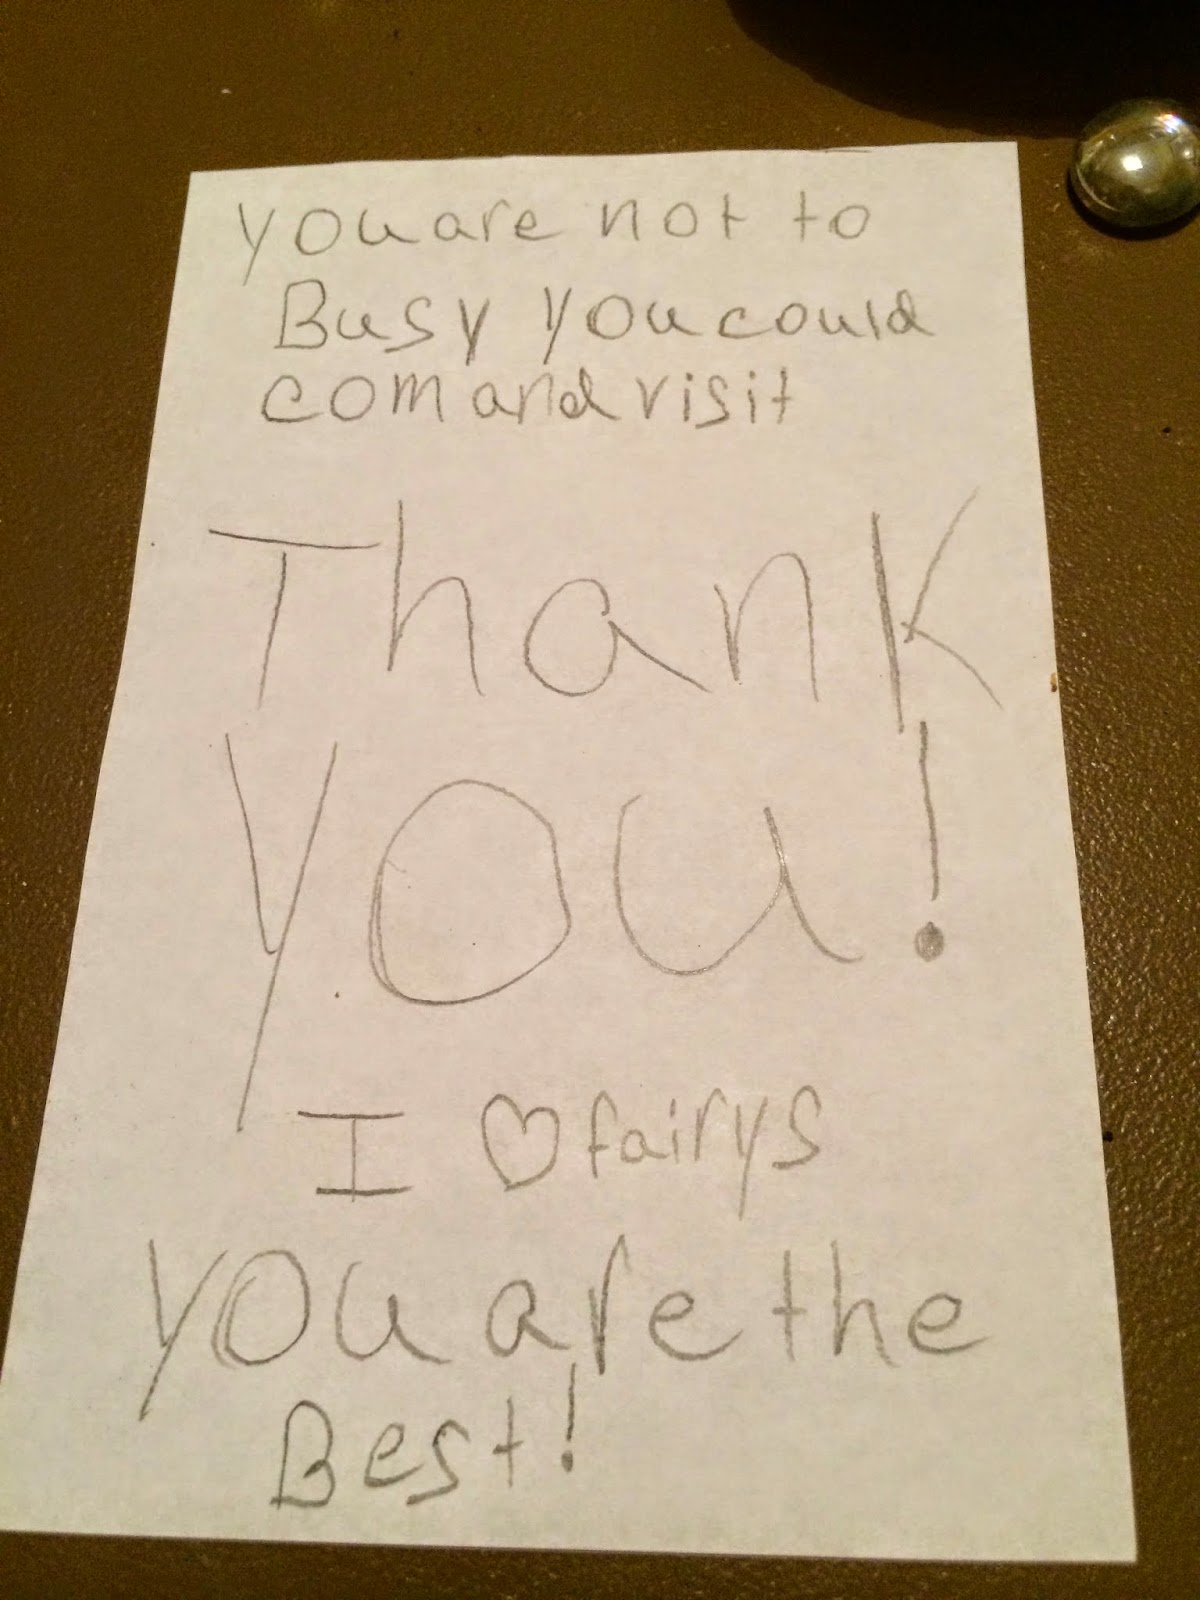 you are not to
Busy you could
com and visit
Thank
you!
I ♡ fairys
you are the
Best!